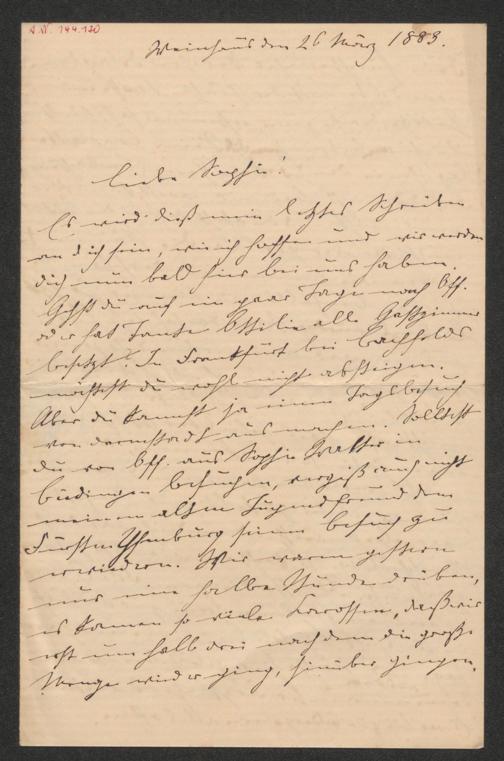 A.N. 144.120
Weinhaus den 26 März 1883.
Liebe Sophie!
Es wird dieß mein letztes Schreiben
an dich sein, wie ich hoffe und wir werden
dich nun bald hier bei uns haben.
Gehst du auf ein paar Tage nach Off.
oder hat Tante Ottilie alle Gastzimmer
besetzt? In Frankfurt bei
möchtest du wohl nicht absteigen.
Aber du kannst ja einen Tagsbesuch
von Darmstadt aus machen. Solltest
du von Off. aus Sophie in
Büdingen besuchen, vergiß auch nicht
meinem alten Jugendfreund dem
Fürsten Ysenburg seinen Besuch zu
erwiedern. Wir waren gestern
nur eine halbe Stunde drüben,
es kamen so viele Karossen, daß wir
erst um halb drei nachdem die große
Menge wieder ging, hinüber gingen.